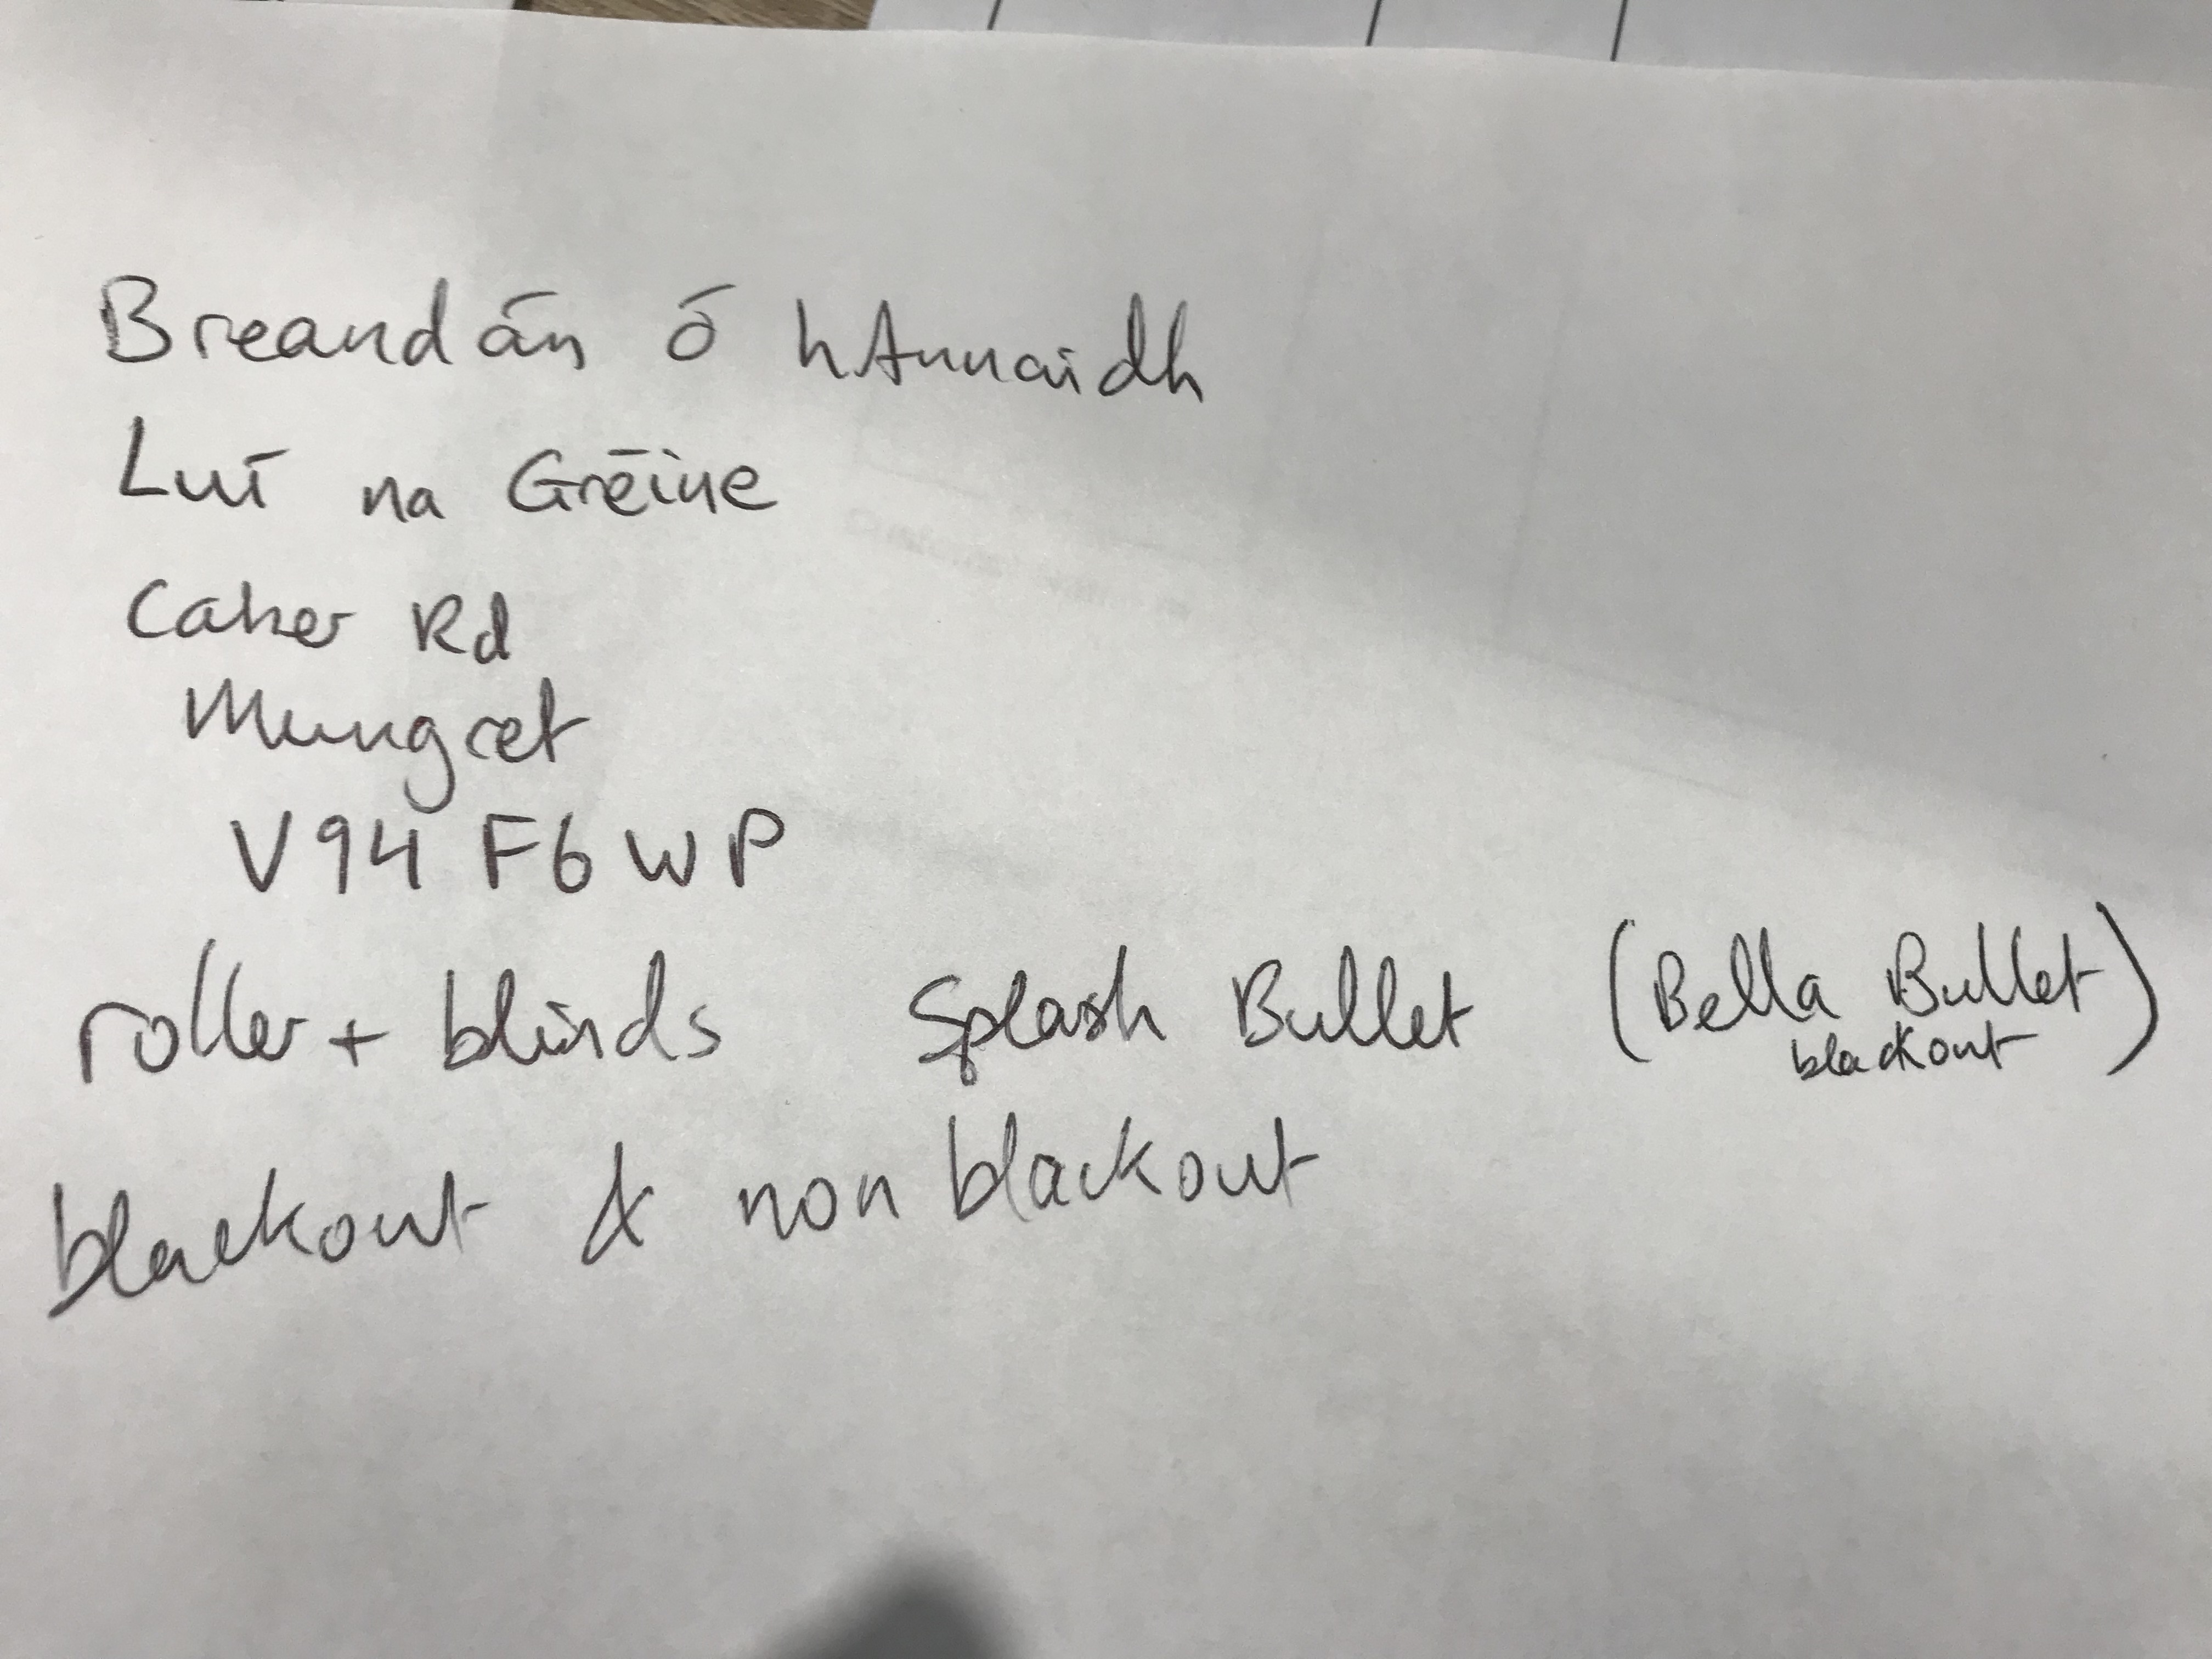 Breandán Ó hAnnaidh
Luí na Gréine
Caher Rd
Mungret
V94 F6WP
roller + blinds Splash Bullet (Bella Bullet
blackout)
blackout & non blackout